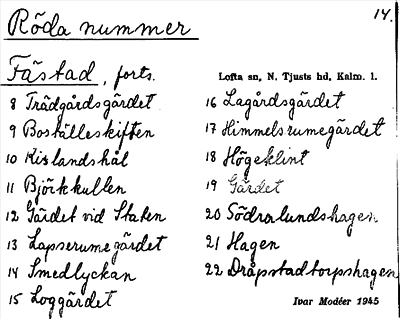 Röda nummer
14.
Fästad, forts.
Lofta sn, N. Tjusts hd, Kalm. l.
8 Trädgårdsgärdet
9 Boställeskiften
10 Kislandshål
11 Björkkullen
12 Gärdet vid Staken
13 Lapserumegärdet
14 Smedlyckan
15 Loggärdet
16 Lagårdsgärdet
17 Himmelsrumegärdet
18 Högeklint
19 Gärdet
20 Södralundshagen
21 Hagen
22 Dråpstadtorpshagen
Ivar Modéer 1945